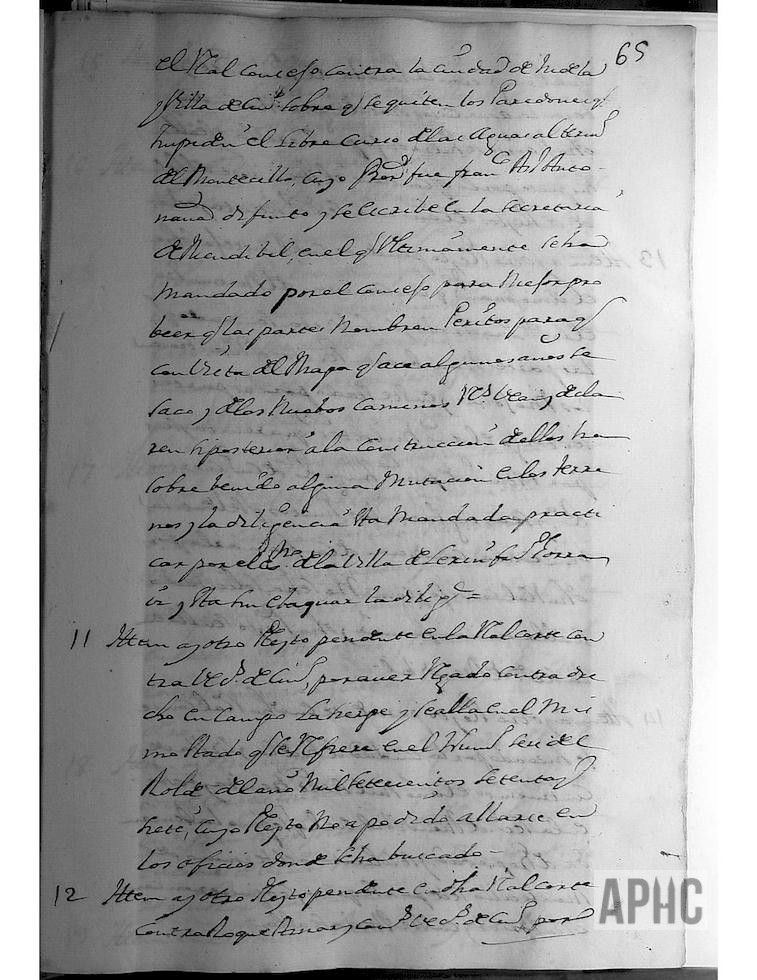 65
el Rl consejo contra la ciudad de tudela
y Villa de sobre q se quiten los Paredones q
Impedn el Libre Curso de las Aguas al termo
del Montecillo, cuyo fue franco Anto
difunto y se escribe en la Secretaria
de Mendibil, en el q Ultimamente se ha
mandado por el consejo para Mejor pro
beer q las partes Nombren Peritos para q
con Vista del Mapa q ace algunos años se
saco y de los Nuebos Caminos Rs Vean y decla
ren si posterior a la Construccion de ellos ha
sobre benido alguna Mutacion en los terre
nos y la diligencia sta Mandada practi
car por el de la Villa de
y sta sin ebaquar la dilig =
11 Ittem ay otro Pleyto pendente en la Rl corte con
tra de, por aver Regado contra dre
cho en campo y se alla en el Mis
mo stado q se Refiere en el
Rolde del año Mil Setecientos Setenta y
Siete, cuyo Pleyto No a podido allarse en
los oficios donde se ha buscado -
12 Ittem ay otro Pleyto pendente en dha Rl corte
Contra Roque de por
APHC